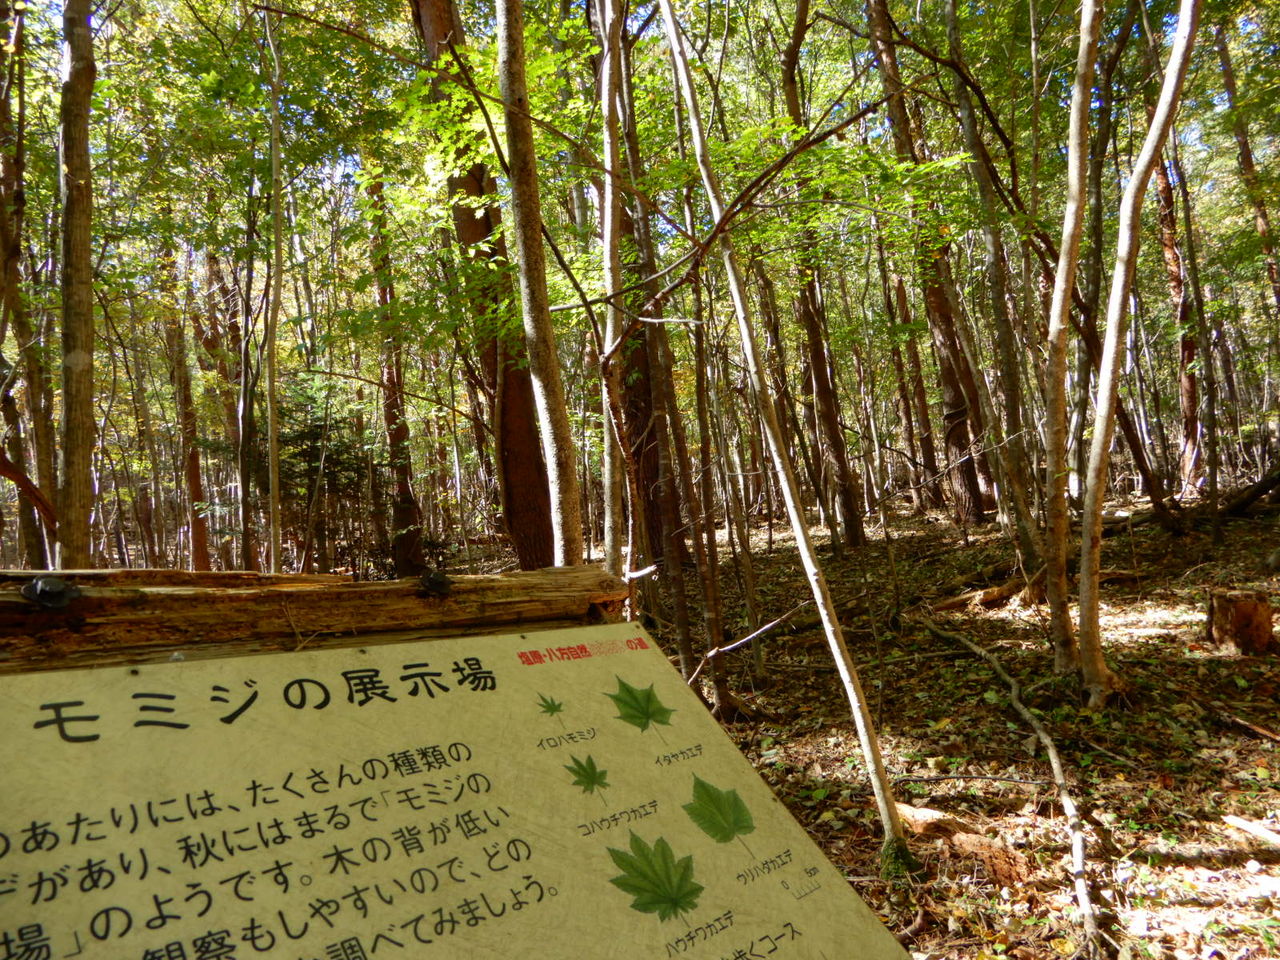 モミジの展示場
塩原・八方自然の道
のあたりには、たくさんの種類の
があり、秋にはまるで「モミジの
場」のようです。木の背が低い
観察もしやすいので、どの
調べてみましょう。
イロハモミジ
イタヤカエデ
コハウチワカエデ
ウリハダカエデ
0 5cm
ハウチワカエデ
歩くコース